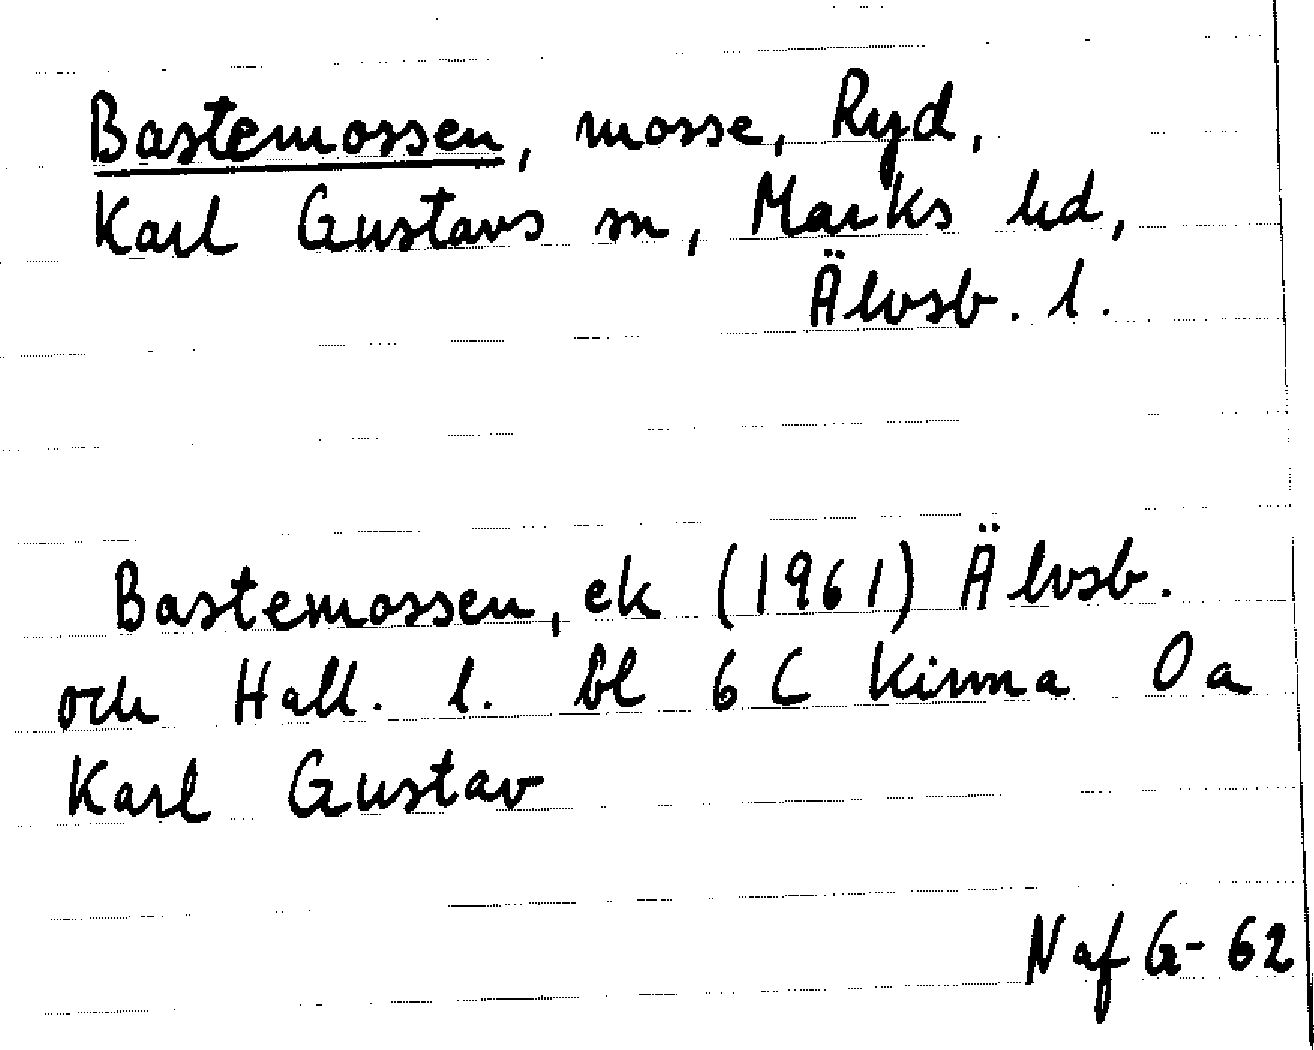 Bastemossen, mosse, Ryd,
Karl Gustavs sn, Marks hd,
Älvsb. l.
Bastemossen, ek (1961) Älvsb.
och Hall. l. bl 6 C Kinna 0 a
Karl Gustav
N af G-62